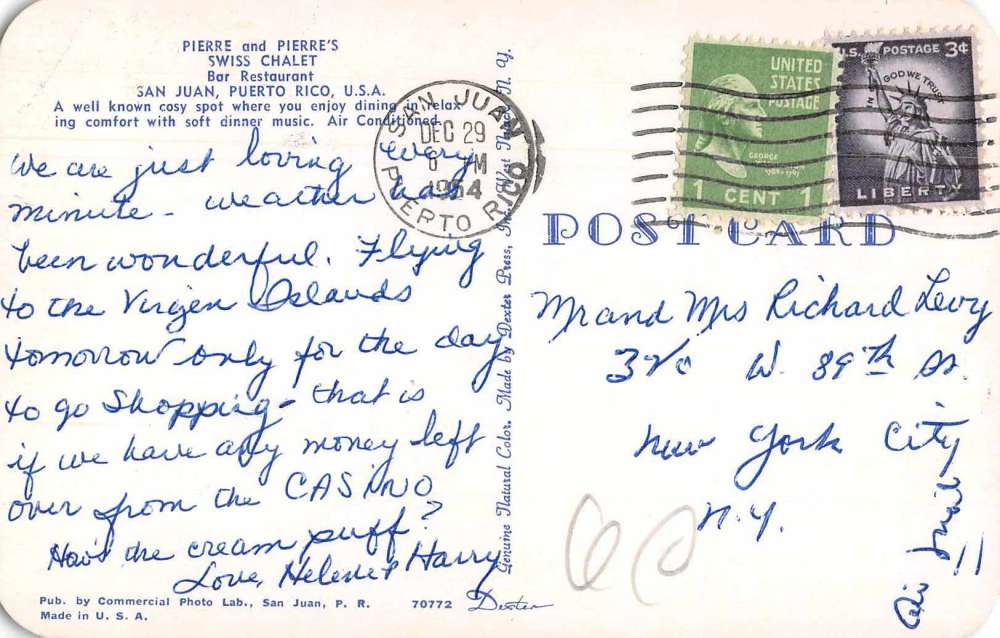 PIERRE and PIERRE'S
SWISS CHALET
Bar Restaurant
SAN JUAN, PUERTO RICO, U.S.A.
A well known cosy spot where you enjoy dining in relax
ing comfort with soft dinner music. Air Conditioned.
We are just loving every
minute - weather has
been wonderful. Flying
to the Virgen Islands
tomorrow only for the day
to go shopping - that is
if we have any money left
over from the CASINO
How's the cream puff?
Love, Helene & Harry
Pub. by Commercial Photo Lab., San Juan, P. R. 70772 Dexter
Made in U. S. A.
Genuine Natural Color. Made by Dexter Press, Inc. West Nyack, N. Y.
SAN JUAN
DEC 29
1954
PUERTO RICO
UNITED
STATES
POSTAGE
GEORGE
1 CENT 1
U.S. POSTAGE 3¢
IN GOD WE TRUST
LIBERTY
POST CARD
Mr and Mrs Richard Levy
W. 89th St.
New York City
N.Y.
Air Mail